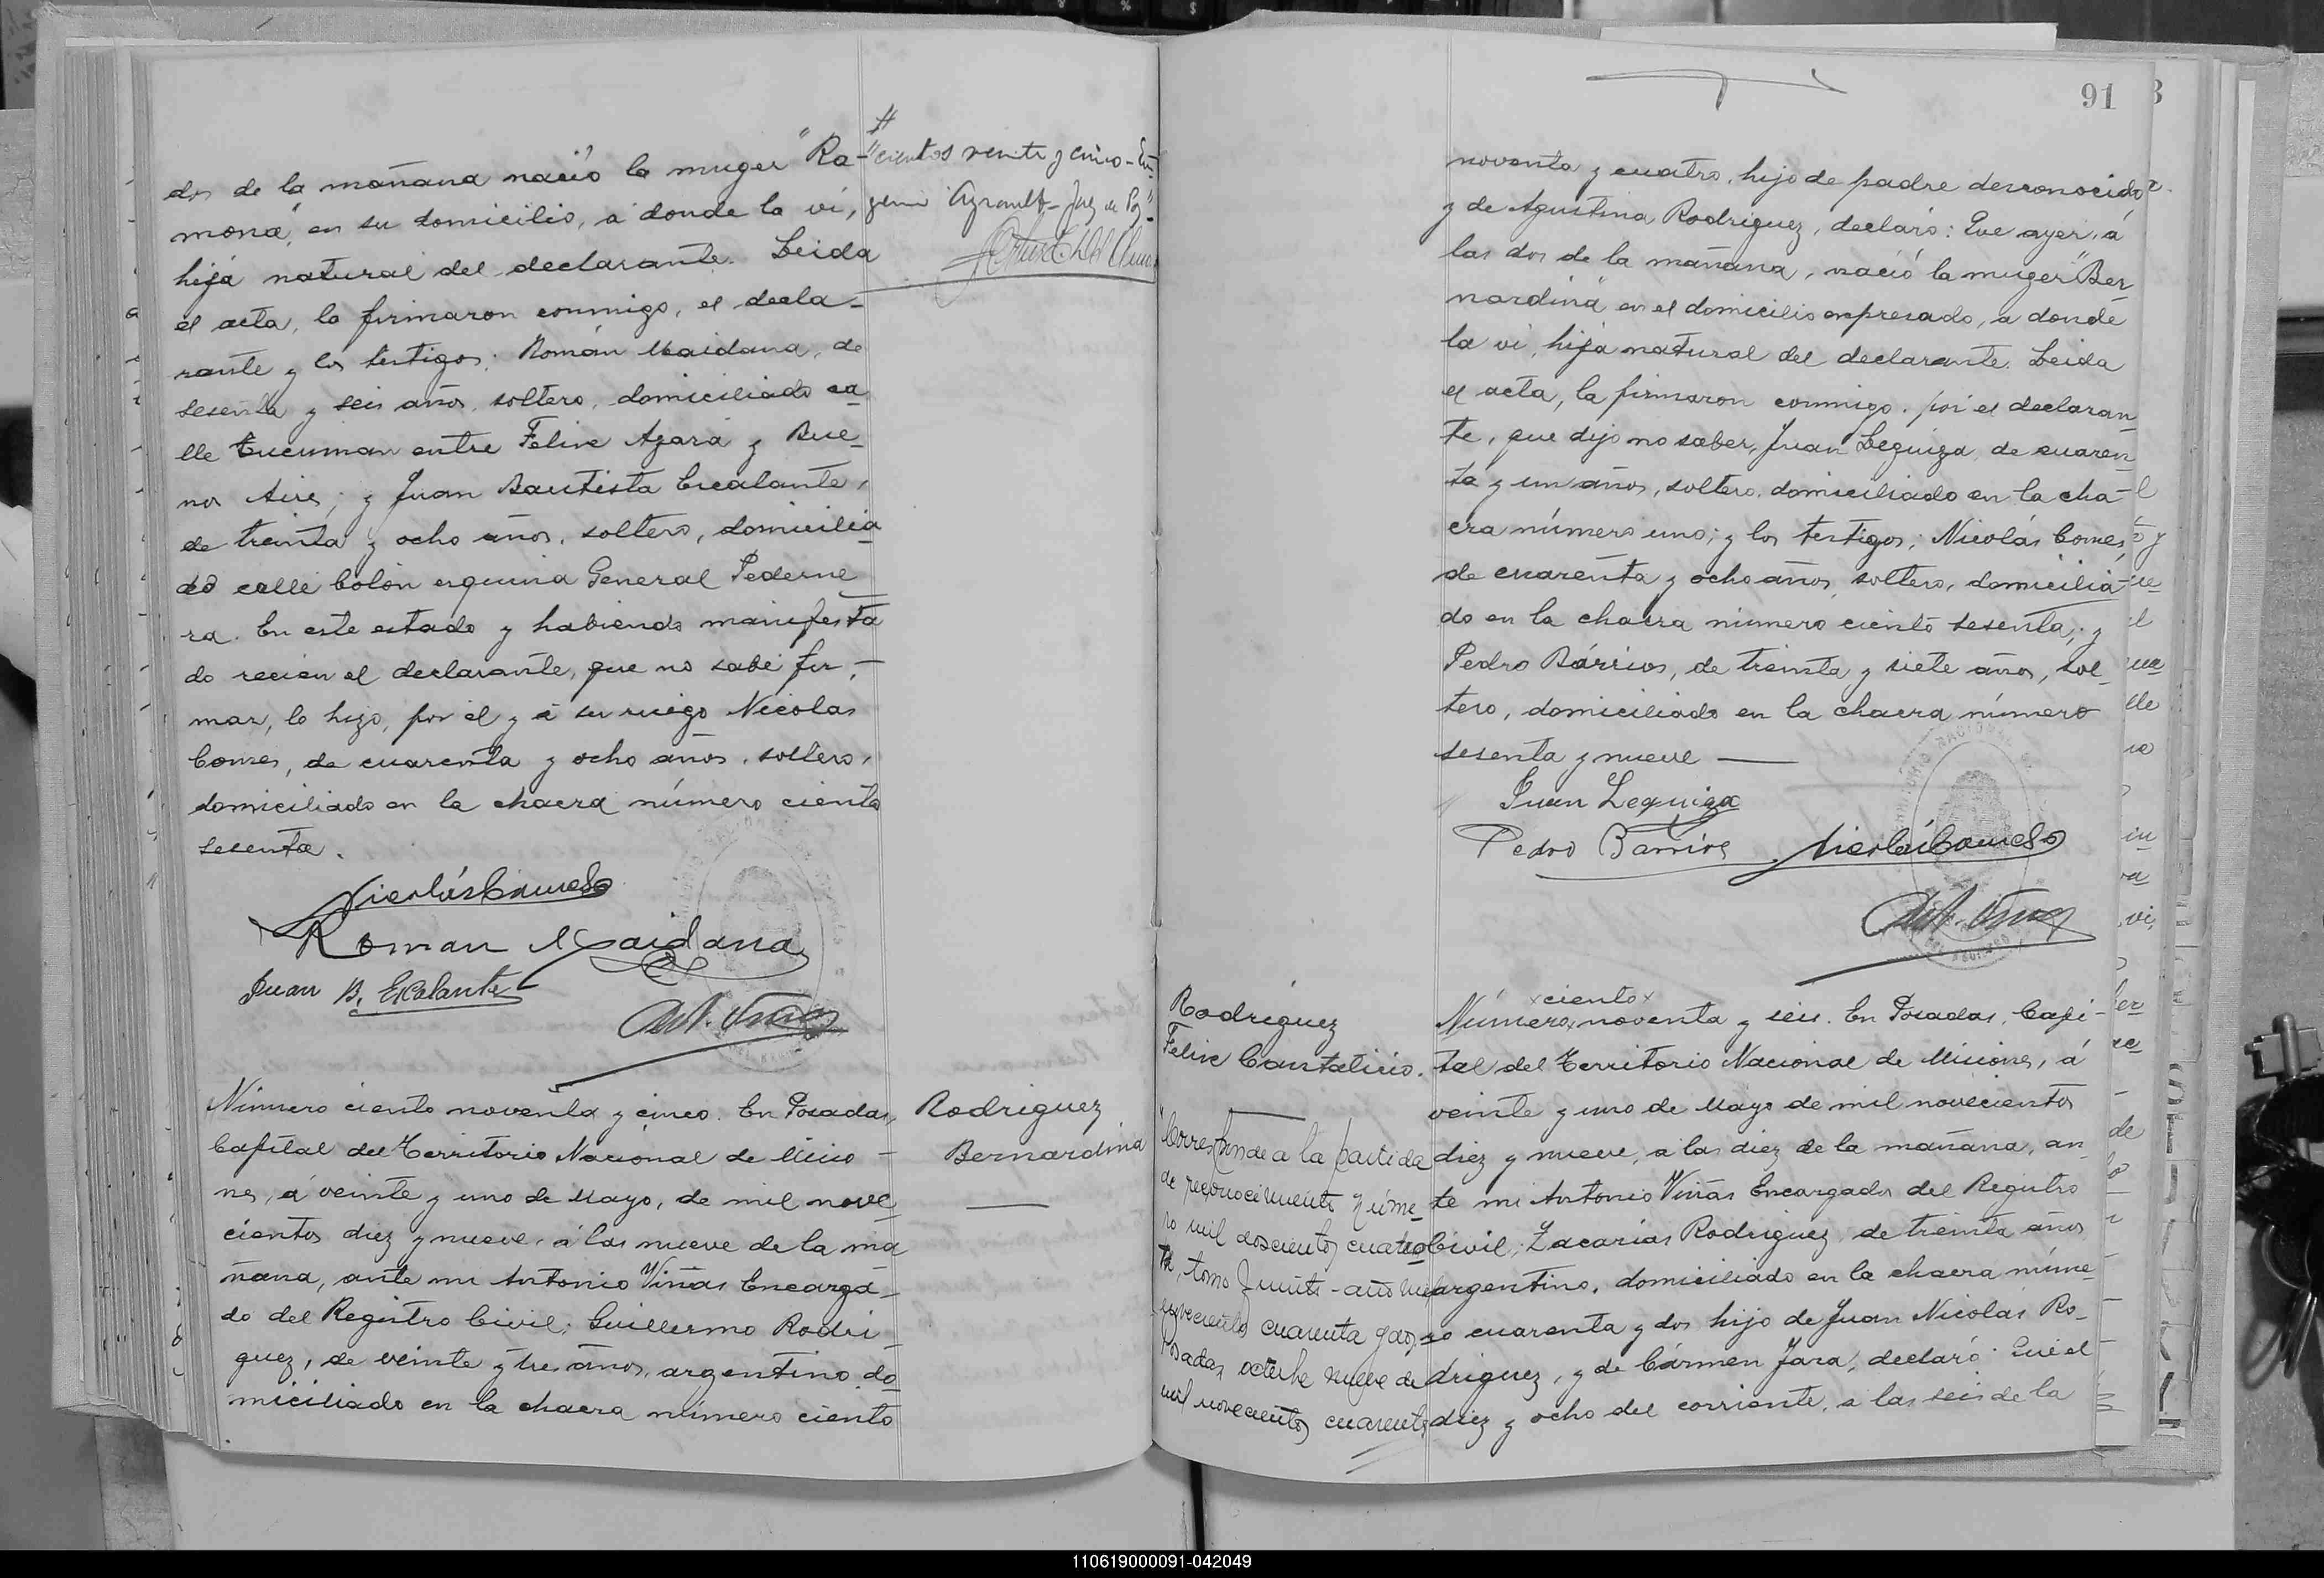 dos de la mañana nació la muger "Ra-
mona", en su domicilio, á donde la vi,
hija natural del declarante. Leida
el acta, la firmaron conmigo, el decla-
rante y los testigos: Román Maidana, de
sesenta y seis años, soltero, domiciliado ca-
lle Tucuman entre Felix Azara y Bue-
nos Aires; y Juan Bautista Escalante,
de treinta y ocho años, soltero, domicilia
do calle Colón esquina General Pederne
ra. En este estado y habiendo manifesta
do recien el declarante, que no sabe fir-
mar, lo hizo, por él y á su ruego Nicolas
Comes, de cuarenta y ocho años, soltero,
domiciliado en la chacra número ciento
sesenta.
Nicolás Comes
Roman Maidana
Juan B. Escalante
Ant. Viñas
#
"cientos veinte y cinco - Eu-
genio - Juez de Paz"
Número ciento noventa y cinco. En Posadas,
Capital del Territorio Nacional de Misio-
nes, á veinte y uno de Mayo, de mil nove-
cientos diez y nueve, á las nueve de la ma
ñana, ante mi Antonio Viñas Encarga-
do del Registro Civil; Guillermo Rodri-
guez, de veinte y tres años, argentino, do-
miciliado en la chacra número ciento
Rodriguez
Bernardina
91
noventa y cuatro, hijo de padre desconocido
y de Agustina Rodriguez, declaró: Que ayer, á
las dos de la mañana, nació la muger "Ber-
nardina" en el domicilio expresado, a donde
la vi, hija natural del declarante. Leida
el acta, la firmaron conmigo, por el declaran-
te, que dijo no saber, Juan Leguiza, de cuaren-
ta y un años, soltero, domiciliado en la cha-
cra número uno; y los testigos; Nicolás Comes,
de cuarenta y ocho años, soltero, domicilia-
do en la chacra número ciento sesenta; y
Pedro Bárrios, de treinta y siete años, sol-
tero, domiciliado en la chacra número
sesenta y nueve
Juan Leguiza
Pedro Barrios Nicolás Comes
Ant. Viñas
Rodriguez
Felix Cantalicio.
"Corresponde a la partida
de reconocimiento núme-
ro mil doscientos cuaren
ta, tomo - año mil
novecientos cuarenta y dos
Posadas, octubre nueve de
mil novecientos cuarenta
xcientox
Número noventa y seis. En Posadas, Capi-
tal del Territorio Nacional de Misiones, á
veinte y uno de Mayo de mil novecientos
diez y nueve, a las diez de la mañana, an-
te mi Antonio Viñas Encargado del Registro
Civil; Zacarias Rodriguez, de treinta años
argentino, domiciliado en la chacra núme-
ro cuarenta y dos hijo de Juan Nicolás Ro-
driguez, y de Cármen Jara, declaró: Que el
diez y ocho del corriente, a las seis de la
110619000091-042049